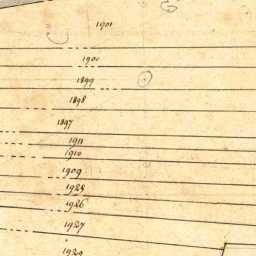 1901
1900
1899
1898
1897
1911
1910
1909
1928
1926
1927